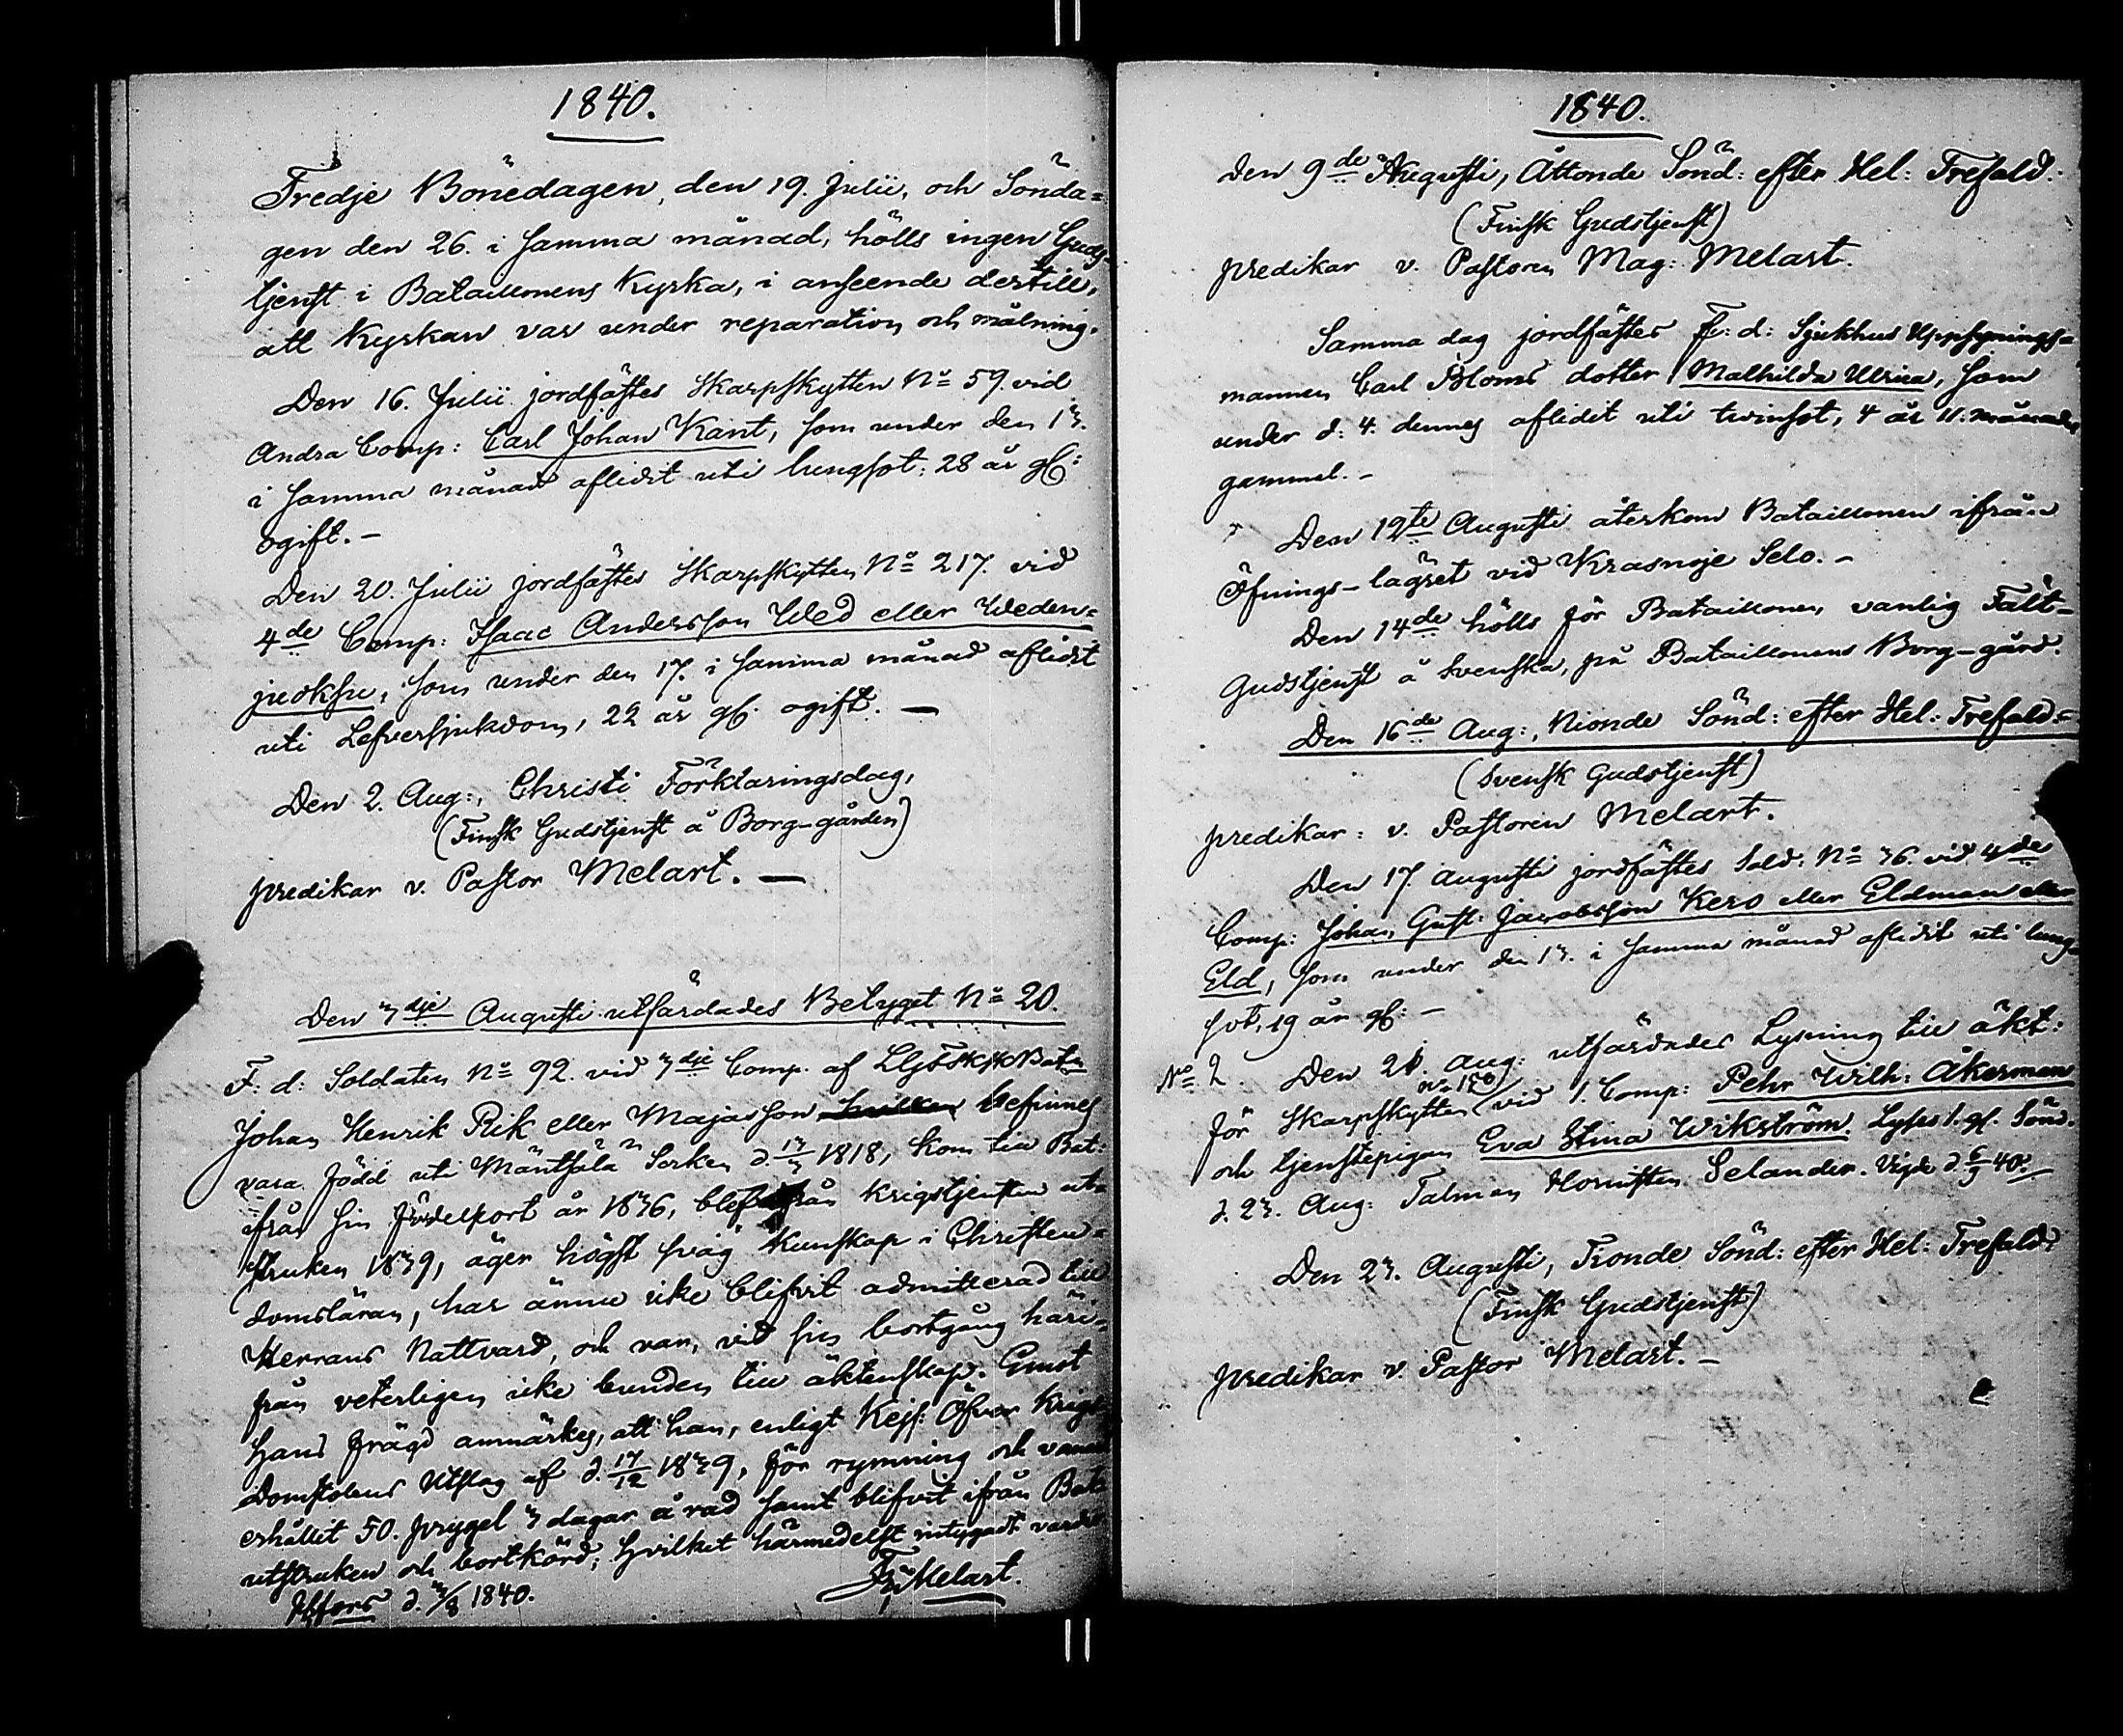 1840.
Tredje Bönedagen, den 19. Julii, och Sönda=
gen den 26. i samma månad, hölls ingen Guds-
tjenst i Bataillonens Kyrka, i anseende dertill,
att Kyrkan var under reparation och målning.
Den 16. Julii jordfästes Skarpskytten No 59. vid
Andra Comp: Carl Johan Kant, som under den 13.
i samma månad aflidit uti lungsot; 28 år gl:
ogift. –
Den 20. Julii jordfästes Skarpskytten No 217. vid
4de Comp: Isaac Andersson Wed eller Weden=
juoksu, som under den 17. i samma månad aflidit
uti Lefversjukdom, 22 år gl. ogift. —
Den 2. Aug:, Christi Förklaringsdag,
(Finsk Gudstjenst å Borg-gården)
predikar v. Pastor Melart. —
Den 3dje Augusti utfärdades Betyget No 20.
F: d: Soldaten No 92. vid 3dje Comp. af Bat:
Johan Henrik Rik eller Majasson befinnes
vara född uti Mäntsälä Socken d. 13/3 1818, kom till Bat:
ifrån sin födelseort år 1836, blef från krigstjensten ut=
struken 1839, äger högst svag kunskap i Christen=
domsläran, har ännu icke blifvit admitterad till
Herrans Nattvard, och var, vid sin bortgång häri=
från veterligen icke bunden till äktenskap. Emot
hans frägd anmärkes, att han, enligt Kejs: Öfver Krigs
Domstolens Utslag af d. 17/12 1839, för rymning och
erhållit 50. prygel 3 dagar å rad samt blifvit ifrån Bat:
utstruken och bortkörd; hvilket härmedelst intygadt varder
Hfors d. 3/8 1840. Melart.
1840.
Den 9de Augusti, Åttonde Sönd: efter Hel: Trefald:
(Finsk Gudstjenst)
predikar v. Pastorn Mag: Melart.
Samma dag jordfästes F: d: Sjukhus Uppsynings=
mannen Carl Bloms dotter Mathilda Ulrica, som
under d: 4. dennes aflidit uti tvinsot, 4 år 11. månader
gammal. –
Den 12te Augusti återkom Bataillonen ifrån
Öfnings-lägret vid Krasnoje Selo. –
Den 14de hölls för Bataillonen, vanlig Fält-
Gudstjenst å Svenska, på Bataillonens Borg-gård.
Den 16de Aug:, Nionde Sönd: efter Hel: Trefald:
(Svensk Gudstjenst)
predikar: v. Pastoren Melart.
Den 17. Augusti jordfästes Sold: No 36. vid 4de
Comp: Johan Gust: Jacobsson Kero eller Eldman eller
Eld, som under den 13. i samma månad aflidit uti lung-
sot, 19 år gl: –
No 2. Den 21. Aug: utfärdades Lysning till äkt:
för Skarpskytten No 130 vid 1. Comp: Pehr Wilh: Åkerman
och tjenstepigan Eva Stina Wikström. Lyses 1. gl. Sönd.
d. 23. Aug: Talman Hornisten Selander. Vigde d. 6/9 40.
Den 23. Augusti, Tionde Sönd: efter Hel: Trefald:
(Finsk Gudstjenst)
predikar v. Pastor Melart. –